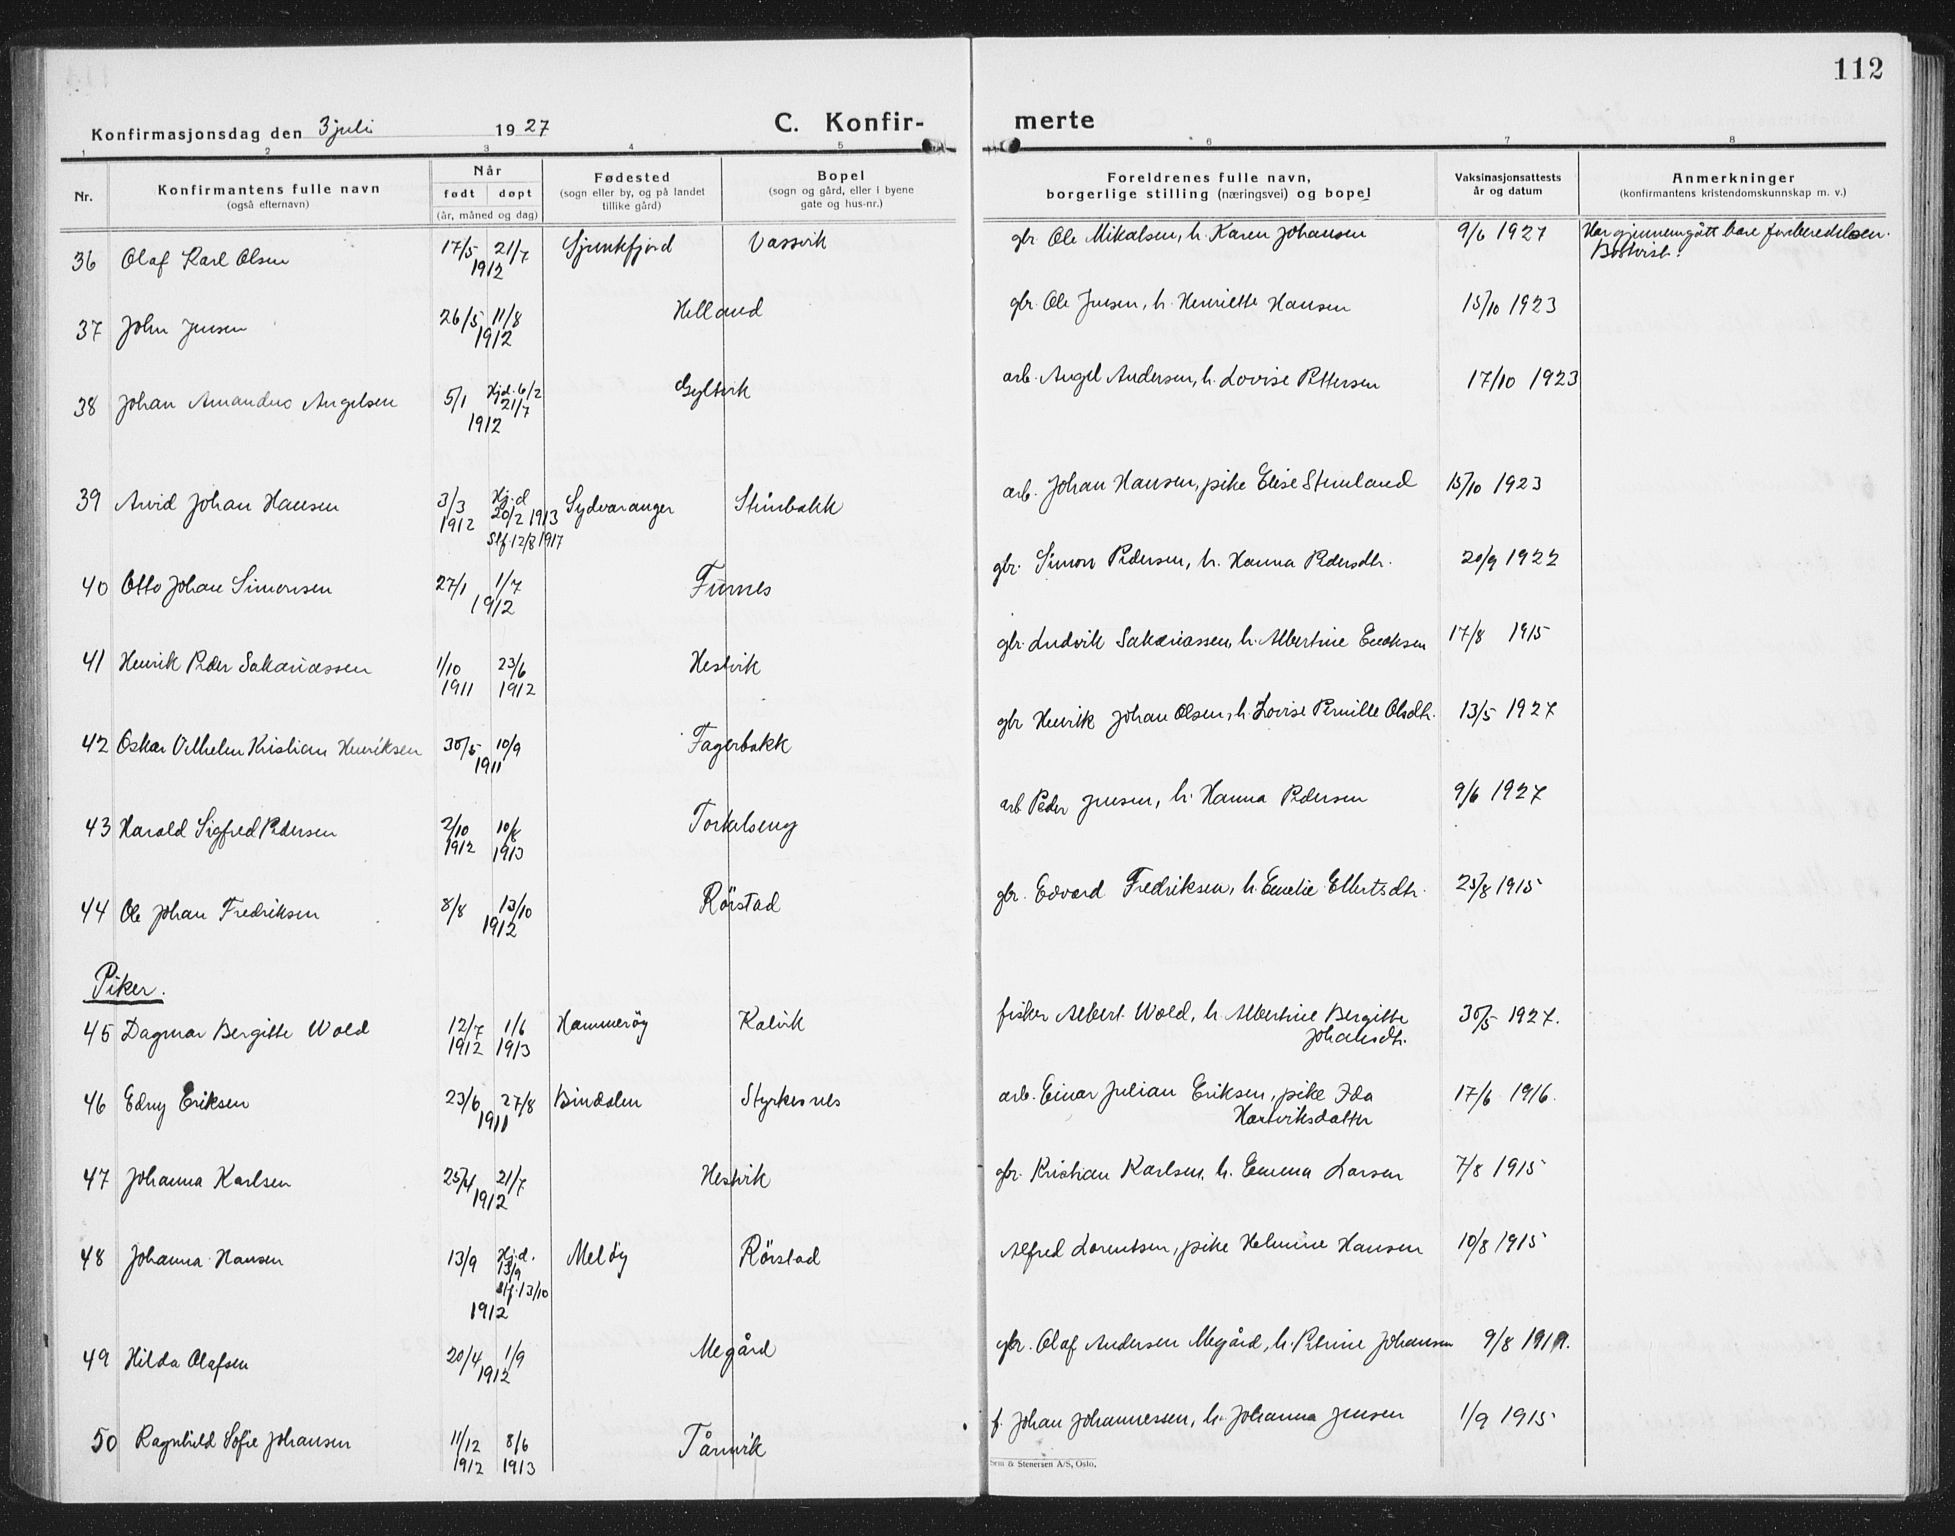 112
Konfirmasjonsdag den 3 juli 1927 C. Konfir- merte
1 2 3 4 5 6 7 8
Nr. Konfirmantens fulle navn (også efternavn) Når født døpt (år, måned og dag) Fødested (sogn eller by, og på landet tillike gård) Bopel (sogn og gård, eller i byene gate og hus-nr.) Foreldrenes fulle navn, borgerlige stilling (næringsvei) og bopel Vaksinasjonsattests år og datum Anmerkninger (konfirmantens kristendomskunnskap m. v.)
36 Olaf Karl Olsen 17/5 21/7 1912 Sjunkfjord Vassvik gbr. Ole Mikalsen, h. Karen Johansen 9/6 1927 Har gjennemgått bare forberedelsen.
37 John Jensen 26/5 11/8 1912 Helland gbr. Ole Jensen, h. Henriette Hansen 15/10 1923
38 Johan Amandus Angelsen 5/1 Hjd. 6/2 21/7 1912 Gyltvik arb. Angel Andersen, h. Lovise Pettersen 17/10 1923
39 Arvid Johan Hansen 3/3 1912 Hj.d 20/2 1913 Slf. 12/8 1917 Sydvaranger Stinbakk arb. Johan Hansen, pike Elise Stenland 15/10 1923
40 Otto Johan Simonsen 27/1 1/7 1912 Furnes gbr. Simon Pedersen, h. Hanna Pedersdtr. 20/9 1922
41 Henrik Peder Sakariassen 1/10 1911 23/6 1912 Hestvik gbr. Ludvik Sakariassen, h. Albertine Enoksen 17/8 1915
42 Oskar Vilhelm Kristian Henriksen 30/5 10/9 1911 Fagerbakk gbr Henrik Johan Olsen, h. Lovise Pernille Olsdtr. 13/5 1927
43 Harald Sigfred Pedersen 2/10 1912 10/8 1913 Torkelseng arb Peder Jensen, h. Hanna Pedersen 9/6 1927
44 Ole Johan Fredriksen 8/8 13/10 1912 Rørstad gbr. Edvard Fredriksen, h. Emelie Ellertsdtr. 25/8 1915
Piker.
45 Dagmar Bergitte Wold 12/7 1912 1/6 1913 Hammerøy Kalvik fisker Albert Wold, h. Albertine Bergitte Johansdtr. 30/5 1927.
46 Edny Eriksen 23/6 27/8 1911 Bindalen Styrkesnes arb. Einar Julian Eriksen, pike Ida Hartviksdatter 17/6 1916.
47 Johanna Karlsen 25/4 21/7 1912 Hestvik gbr. Kristian Karlsen, h. Emma Larsen 7/8 1915
48 Johanna Hansen 13/9 Hj.d. 13/9 Slf. 13/10 1912 Meløy Rørstad Alfred Lorentsen, pike Helmine Hansen 10/8 1915
49 Hilda Olafsen 20/4 1/9 1912 Megård gbr. Olaf Andersen Megård, h. Petrine Johansen 9/8 1919.
50 Ragnhild Sofie Johansen 11/12 1912 8/6 1913 Tårnvik f. Johan Johannessen, h. Johanna Jensen 1/9 1915
Sem & Stenersen A/S, Oslo.